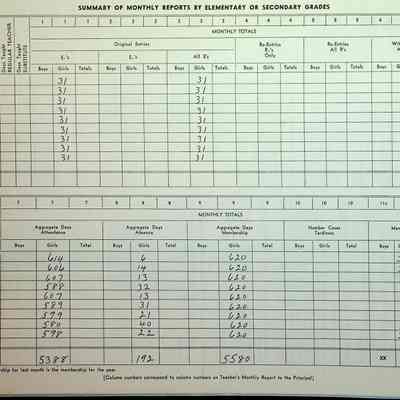 SUMMARY OF MONTHLY REPORTS BY ELEMENTARY OR SECONDARY GRADES
1 1 1 2 2 2 3 3 3 4 4 4 5 5 5 6
Days Taught REGULAR TEACHER
Days Taught SUBSTITUTE
MONTHLY TOTALS
Original Entries
E₁'s
All R's
Re-Entries
Only
Re-Entries
All R's
Boys Girls Totals Boys Girls Totals Boys Girls Totals Boys Girls Totals Boys Girls Totals Boys
31 31
31 31
31 31
31 31
31 31
31 31
31 31
31 31
31 31
7 7 8 8 8 9 9 9 10 10 10 11c
MONTHLY TOTALS
Aggregate Days Attendance
Aggregate Days Absence
Aggregate Days Membership
Number Cases Tardiness
Boys Girls Total Boys Girls Total Boys Girls Total Boys Girls Total Boys
614 6 620
606 14 620
607 13 620
588 32 620
607 13 620
589 31 620
599 21 620
580 40 620
598 22 620
5388 192 5580 XX
ship for last month is the membership for the year.
(Column numbers correspond to column numbers on Teacher's Monthly Report to the Principal)